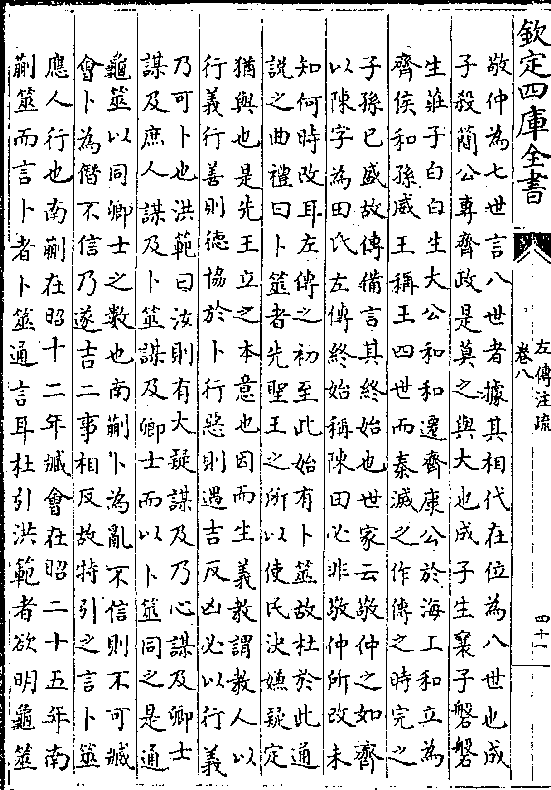 欽定四庫全書
左傳注疏
卷八
四十一
敬仲為七世言八世者據其相代在位為八世也成
子殺簡公專齊政是莫之與大也成子生襄子磐磐
生莊子白白生大公和和遷齊康公於海上和立為
齊侯和孫威王稱王四世而秦滅之作傳之時完之
子孫已盛故傳備言其終始也世家云敬仲之如齊
以陳字為田氏左傳終始稱陳田必非敬仲所改未
知何時改耳左傳之初至此始有卜筮故杜於此通
說之曲禮曰卜筮者先聖王之所以使民決嫌疑定
猶與也是先王立之本意也因而生義教謂教人以
行義行善則德協於卜行惡則遇吉反凶必以行義
乃可卜也洪範曰汝則有大疑謀及乃心謀及卿士
謀及庶人謀及卜筮謀及卿士而以卜筮同之是通
龜筮以同卿士之數也南蒯卜為亂不信則不可臧
會卜為僭不信乃遂吉二事相反故特引之言卜筮
應人行也南蒯在昭十二年臧會在昭二十五年南
蒯筮而言卜者卜筮通言耳杜引洪範者欲明龜筮